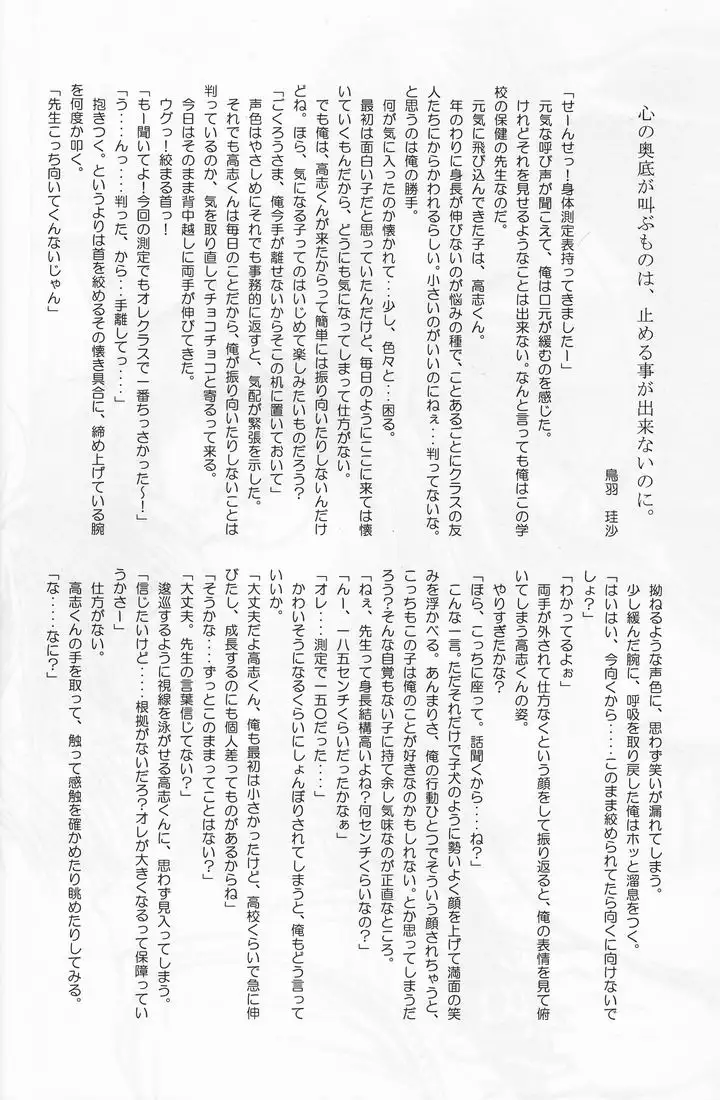 心の奥底が叫ぶものは、止める事が出来ないのに。
鳥羽　珪沙
「せーんせっ！身体測定表持ってきましたー」
元気な呼び声が聞こえて、俺は口元が緩むのを感じた。
けれどそれを見せるようなことは出来ない。なんと言っても俺はこの学
校の保健の先生なのだ。
元気に飛び込んできた子は、高志くん。
年のわりに身長が伸びないのが悩みの種で、ことあるごとにクラスの友
人たちにからかわれるらしい。小さいのがいいのにねぇ・・・判ってないな。
と思うのは俺の勝手。
何が気に入ったのか懐かれて・・少し、色々と・・困る。
最初は面白い子だと思っていたんだけど、毎日のようにここに来ては懐
いていくもんだから、どうにも気になってしまって仕方がない。
でも俺は、高志くんが来たからって簡単には振り向いたりしないんだけ
どね。ほら、気になる子ってのはいじめて楽しみたいものだろう？
「ごくろうさま、俺今手が離せないからそこの机に置いておいて」
声色はやさしめにそれでも事務的に返すと、気配が緊張を示した。
それでも高志くんは毎日のことだから、俺が振り向いたりしないことは
判っているのか、気を取り直してチョコチョコと寄るって来る。
今日はそのまま背中越しに両手が伸びてきた。
ウグっ！絞まる首っ！
「もー聞いてよ！今回の測定でもオレクラスで一番ちっさかった～！」
「う・・・んっ・・・判った、から・・・手離してっ・・・」
抱きつく。というよりは首を絞めるその懐き具合に、締め上げている腕
を何度か叩く。
「先生こっち向いてくんないじゃん」
拗ねるような声色に、思わず笑いが漏れてしまう。
少し緩んだ腕に、呼吸を取り戻した俺はホッと溜息をつく。
「はいはい、今向くから・・・・このまま絞められてたら向くに向けないで
しょ？」
「わかってるよぉ」
両手が外されて仕方なくという顔をして振り返ると、俺の表情を見て俯
いてしまう高志くんの姿。
やりすぎたかな？
「ほら、こっちに座って。話聞くから・・・・ね？」
こんな一言。ただそれだけで子犬のように勢いよく顔を上げて満面の笑
みを浮かべる。あんまりさ、俺の行動ひとつでそういう顔されちゃうと、
こっちもこの子は俺のことが好きなのかもしれない。とか思ってしまうだ
ろう？そんな自覚もない子に持て余し気味なのが正直なところ。
「ねぇ、先生って身長結構高いよね？何センチくらいなの？」
「んー、一八五センチくらいだったかなぁ」
「オレ・・・測定で一五〇だった・・・」
かわいそうになるくらいにしょんぼりされてしまうと、俺もどう言って
いいか。
「大丈夫だよ高志くん、俺も最初は小さかったけど、高校くらいで急に伸
びたし、成長するのにも個人差ってものがあるからね」
「そうかな・・・ずっとこのままってことはない？」
「大丈夫。先生の言葉信じてない？」
逡巡するように視線を泳がせる高志くんに、思わず見入ってしまう。
「信じたいけど・・・・根拠がないだろ？オレが大きくなるって保障ってい
うかさー」
仕方がない。
高志くんの手を取って、触って感触を確かめたり眺めたりしてみる。
「な・・・・なに？」